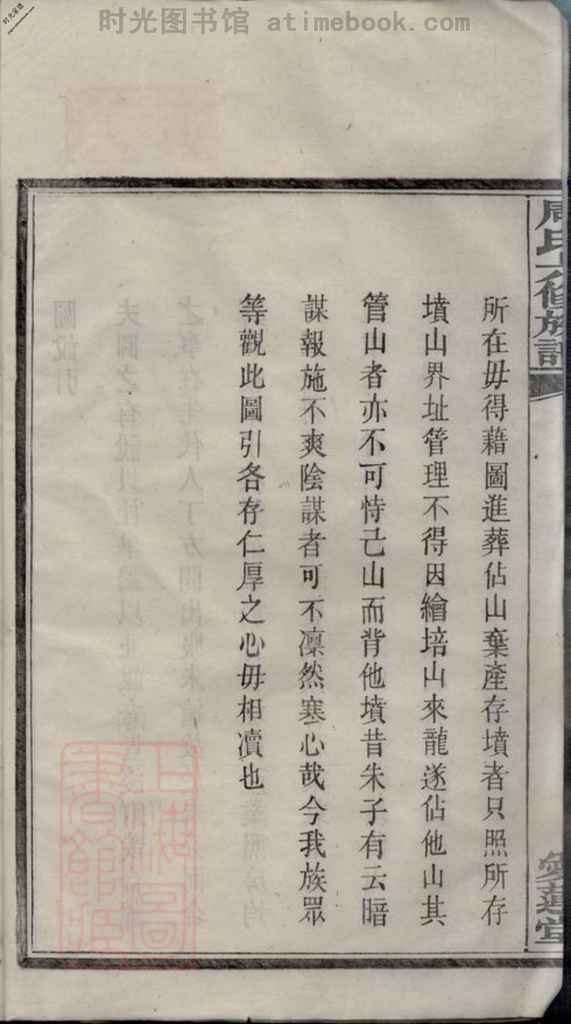 时光图书馆 atimebook.com
所在毋得藉圖進葬佔山棄產存墳者只照所存
墳山界址管理不得因繪培山來龍遂佔他山其
管山者亦不可恃己山而背他墳昔朱子有云暗
謀報施不爽陰謀者可不凜然寒心哉今我族眾
等觀此圖引各存仁厚之心毋相凟也
愛蓮堂